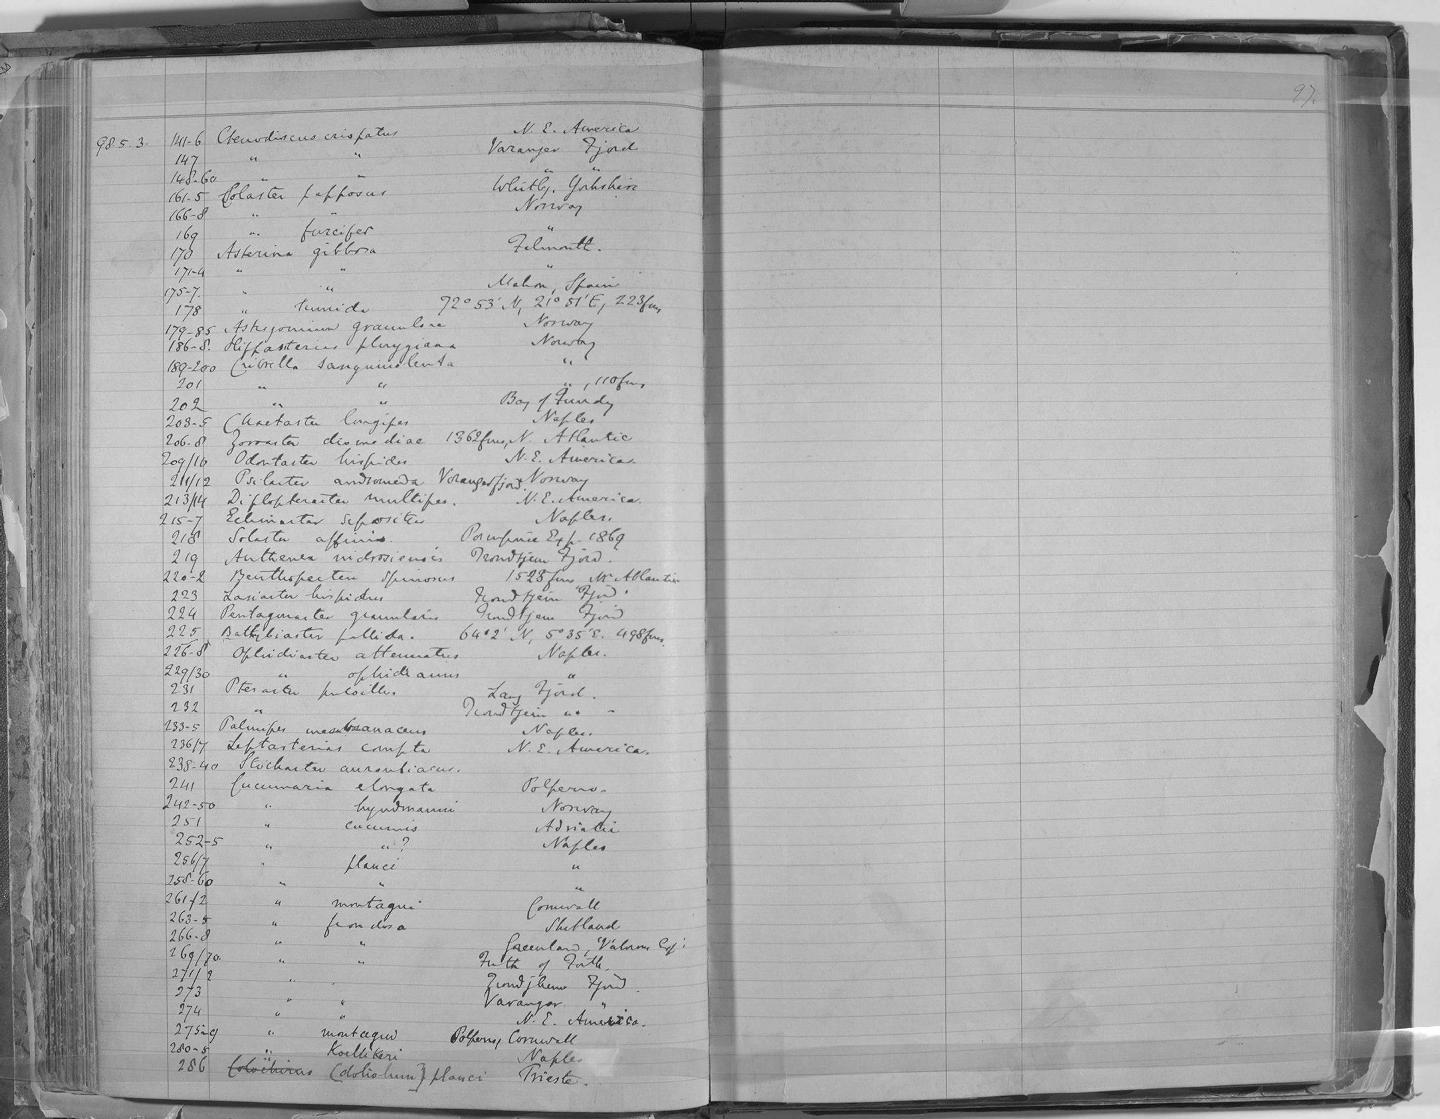 97.
98.5.3. 141-6 Ctenodiscus crispatus N. E. America
147 " " Varanger Fjord
148-60 " " " "
161-5 Solaster papposus Whitby, Yorkshire
166-8 " " Norway
169 " furcifer "
170 Asterina gibbosa Falmouth.
171-4 " " "
175-7. " " Mahon, Spain
178 " tumida 72° 53' N, 21° 51' E, 223 fms
179-85 Astrogonium granulare Norway
186-8. Hippasterias phrygiana Norway
189-200 Cribrella sanguinolenta "
201 " " ", 110 fms
202 " " Bay of Fundy
203-5 Chaetaster longipes Naples
206-8 Zoroaster diomediae 1362 fms, N. Atlantic
209/10 Odontaster hispidus N. E. America.
211/12 Psilaster andromeda Varangerfjord Norway
213/14 Diplopteraster multipes. N. E. America.
215-7 Echinaster sepositus Naples.
218 Solaster affinis. Porcupine Exp. 1869
219 Anthenea nidrosiensis Trondtjem Fjord.
220-2 Benthopecten spinosus 1525 fms N. Atlantic
223 Lasiaster hispidus Trondtjem Fjord.
224 Pentagonaster granularis Trondtjem Fjord
225 Bathybiaster pallida. 64° 2' N, 5° 35' E. 498 fms.
226-8 Ophidiaster attenuatus Naples.
229/30 " ophidianus "
231 Pteraster pulvillus Lang Fjord.
232 " Trondtjem "
233-5 Palmipes membranaceus Naples
236/7 Leptasterias compta N. E. America.
238-40 Stichaster aurantiacus.
241 Cucumaria elongata Polperro.
242-50 " hyndmanni Norway
251 " cucumis Adriatic
252-5 " " ? Naples
256/7 " planci "
258-60 " " "
261/2 " montagui Cornwall
263-5 " frondosa Shetland
266-8 " " Greenland, Valorous Exp.
269/70 " " Firth of Forth.
271/2 " " Trondjhem Fjord.
273 " " Varanger "
274 " " N. E. America.
275-9 " montagui Polperro, Cornwall
280-5 " Koellikeri Naples
286 (doliolum) planci Trieste.